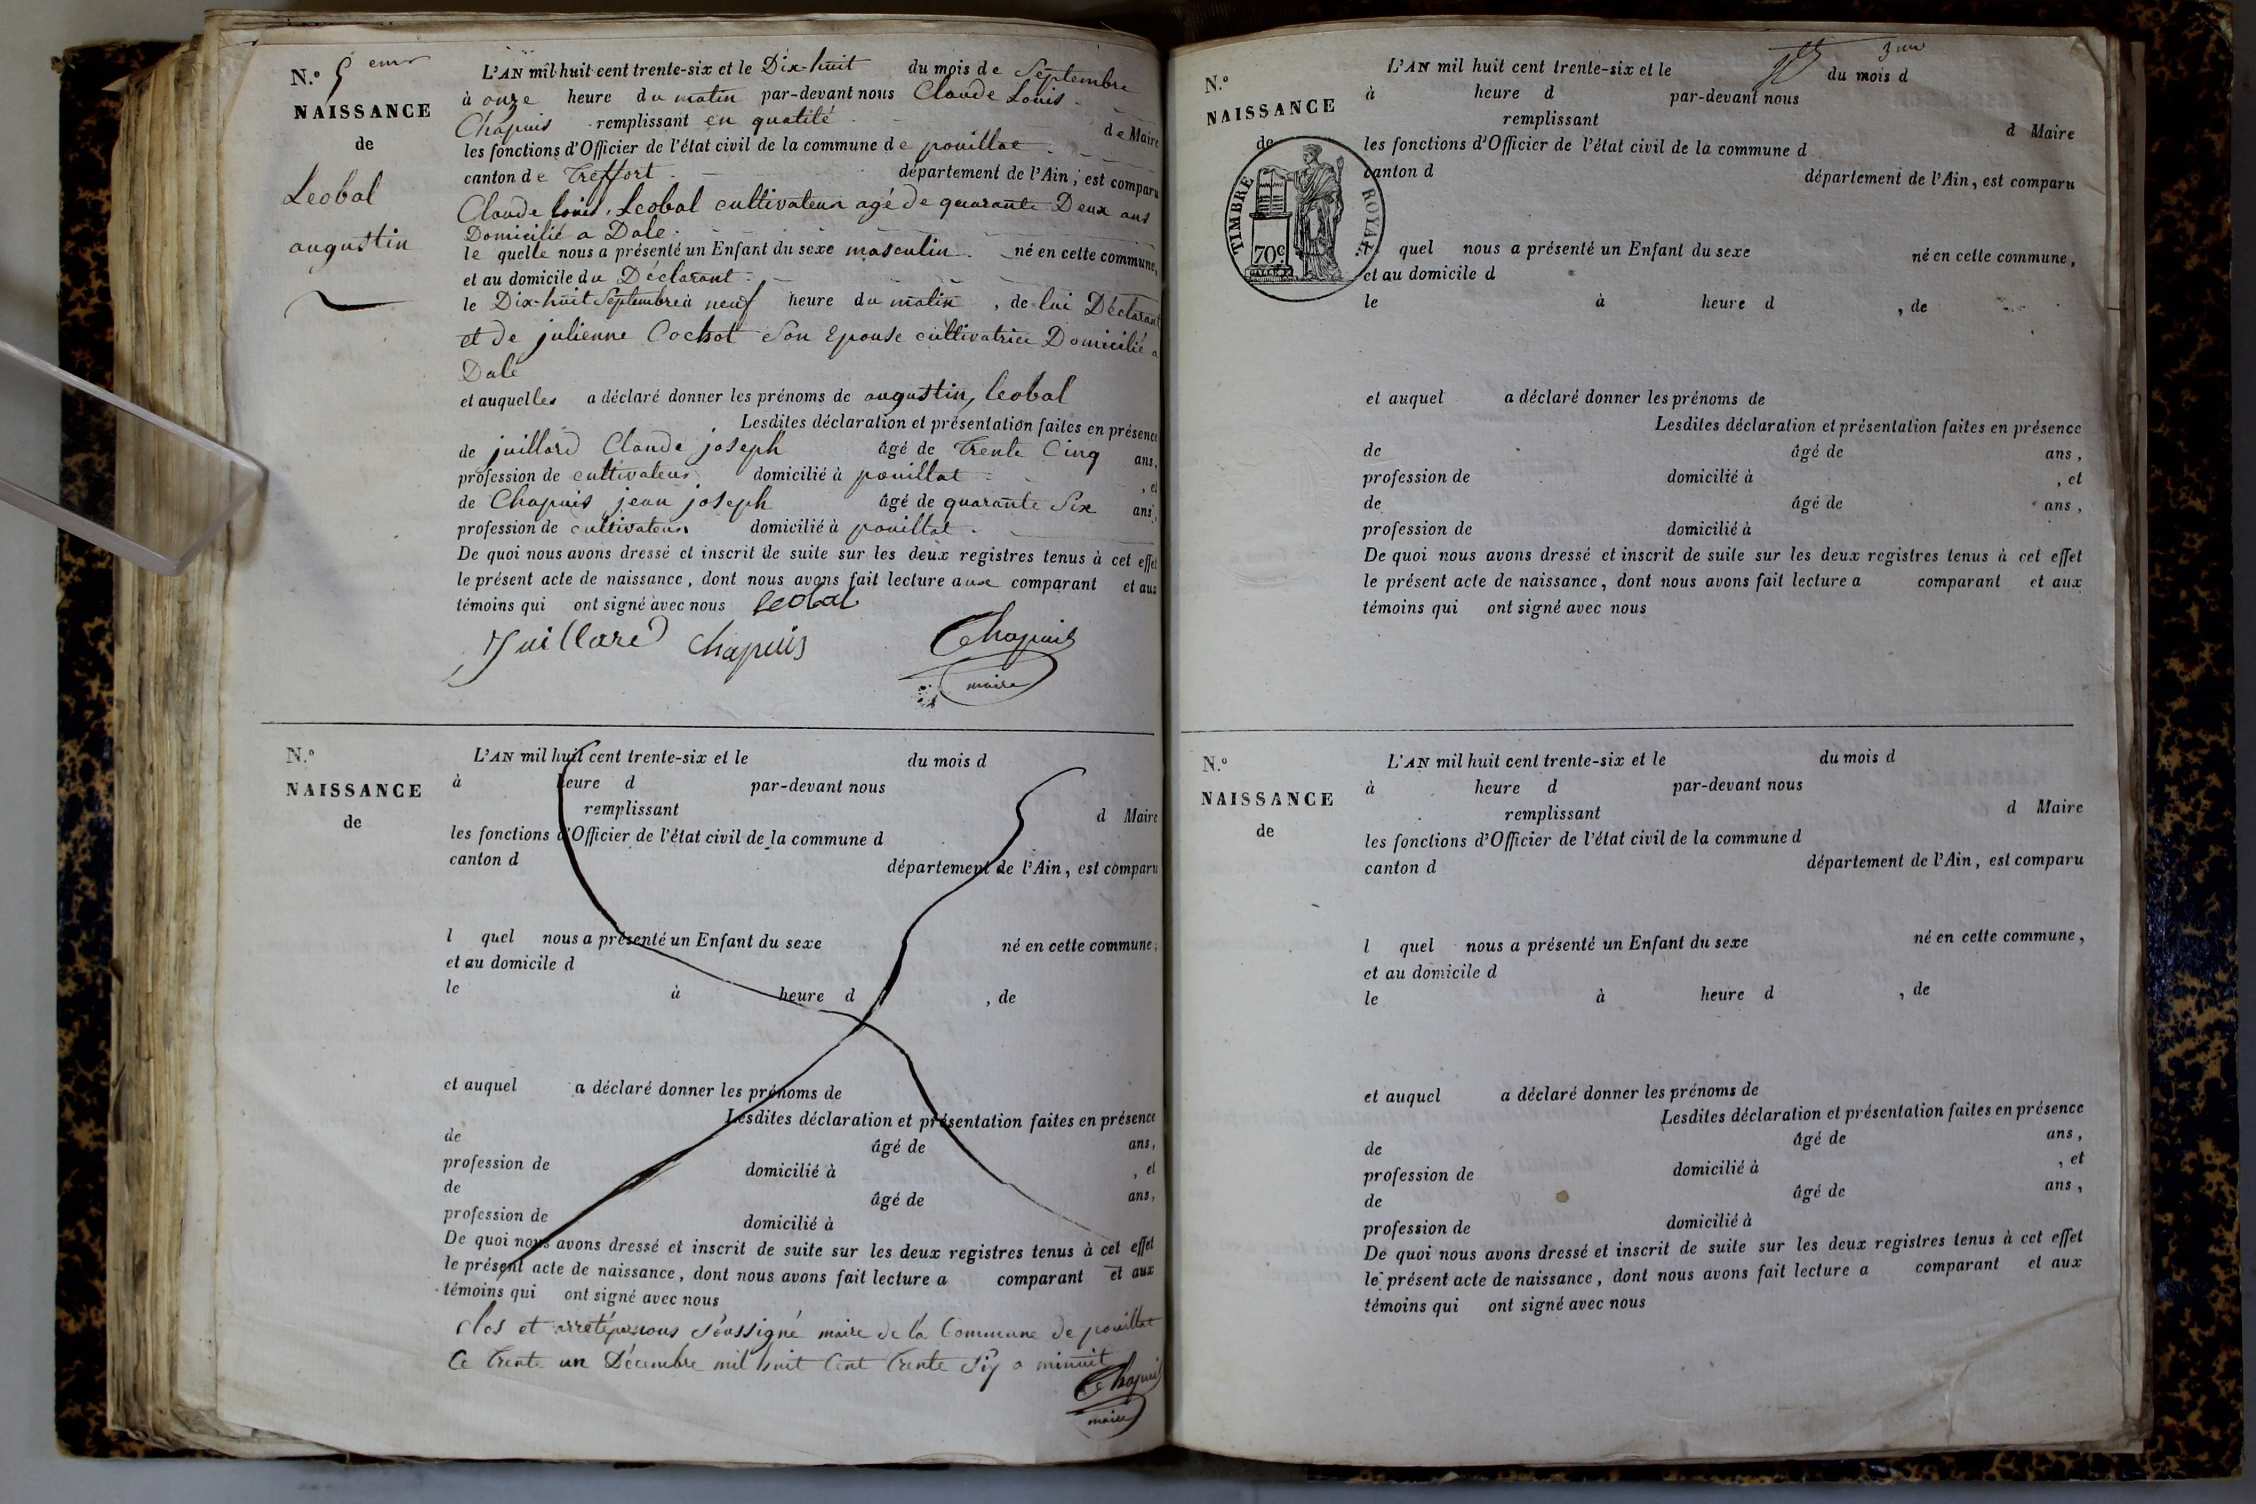 N.° 5 eme
NAISSANCE
de
Leobal
augustin
L'AN mil huit cent trente-six et le Dix-huit du mois de Septembre
à onze heure du matin par-devant nous Claude Louis
Chapuis remplissant en qualité de Maire
les fonctions d'Officier de l'état civil de la commune de pouillat
canton de Treffort département de l'Ain, est comparu
Claude Louis Leobal cultivateur agé de quarante Deux ans
Domicilié a Dale
le quelle nous a présenté un Enfant du sexe masculin né en cette commune,
et au domicile du Déclarant
le Dix-huit Septembre à neuf heure du matin, de lui Déclarant
et de julienne Cochot son Epouse cultivatrice Domicilié a
Dale
et auquelles a déclaré donner les prénoms de augustin, leobal
Lesdites déclaration et présentation faites en présence
de juillard Claude joseph âgé de trente Cinq ans,
profession de cultivateur domicilié à pouillat, et
de Chapuis jean joseph âgé de quarante Six ans,
profession de cultivateur domicilié à pouillat
De quoi nous avons dressé et inscrit de suite sur les deux registres tenus à cet effet
le présent acte de naissance, dont nous avons fait lecture aux comparant et aux
témoins qui ont signé avec nous Leobal
Juillard Chapuis Chapuis
maire
N.°
NAISSANCE
de
L'AN mil huit cent trente-six et le du mois d
à heure d par-devant nous
remplissant d Maire
les fonctions d'Officier de l'état civil de la commune d
canton d département de l'Ain, est comparu
l quel nous a présenté un Enfant du sexe né en cette commune,
et au domicile d
le à heure d , de
et auquel a déclaré donner les prénoms de
Lesdites déclaration et présentation faites en présence
de âgé de ans,
profession de domicilié à , et
de âgé de ans,
profession de domicilié à
De quoi nous avons dressé et inscrit de suite sur les deux registres tenus à cet effet
le présent acte de naissance, dont nous avons fait lecture a comparant et aux
témoins qui ont signé avec nous
Clos et arreté par nous soussigné maire de la Commune de pouillat
Ce trente un Décembre mil huit Cent trente six a minuit
Chapuis
maire
N.°
NAISSANCE
de
TIMBRE ROYAL
70c
L'AN mil huit cent trente-six et le du mois d
à heure d par-devant nous
remplissant d Maire
les fonctions d'Officier de l'état civil de la commune d
canton d département de l'Ain, est comparu
quel nous a présenté un Enfant du sexe né en cette commune,
et au domicile d
le à heure d , de
et auquel a déclaré donner les prénoms de
Lesdites déclaration et présentation faites en présence
de âgé de ans,
profession de domicilié à , et
de âgé de ans,
profession de domicilié à
De quoi nous avons dressé et inscrit de suite sur les deux registres tenus à cet effet
le présent acte de naissance, dont nous avons fait lecture a comparant et aux
témoins qui ont signé avec nous
N.°
NAISSANCE
de
L'AN mil huit cent trente-six et le du mois d
à heure d par-devant nous
remplissant d Maire
les fonctions d'Officier de l'état civil de la commune d
canton d département de l'Ain, est comparu
l quel nous a présenté un Enfant du sexe né en cette commune,
et au domicile d
le à heure d , de
et auquel a déclaré donner les prénoms de
Lesdites déclaration et présentation faites en présence
de âgé de ans,
profession de domicilié à , et
de âgé de ans,
profession de domicilié à
De quoi nous avons dressé et inscrit de suite sur les deux registres tenus à cet effet
le présent acte de naissance, dont nous avons fait lecture a comparant et aux
témoins qui ont signé avec nous